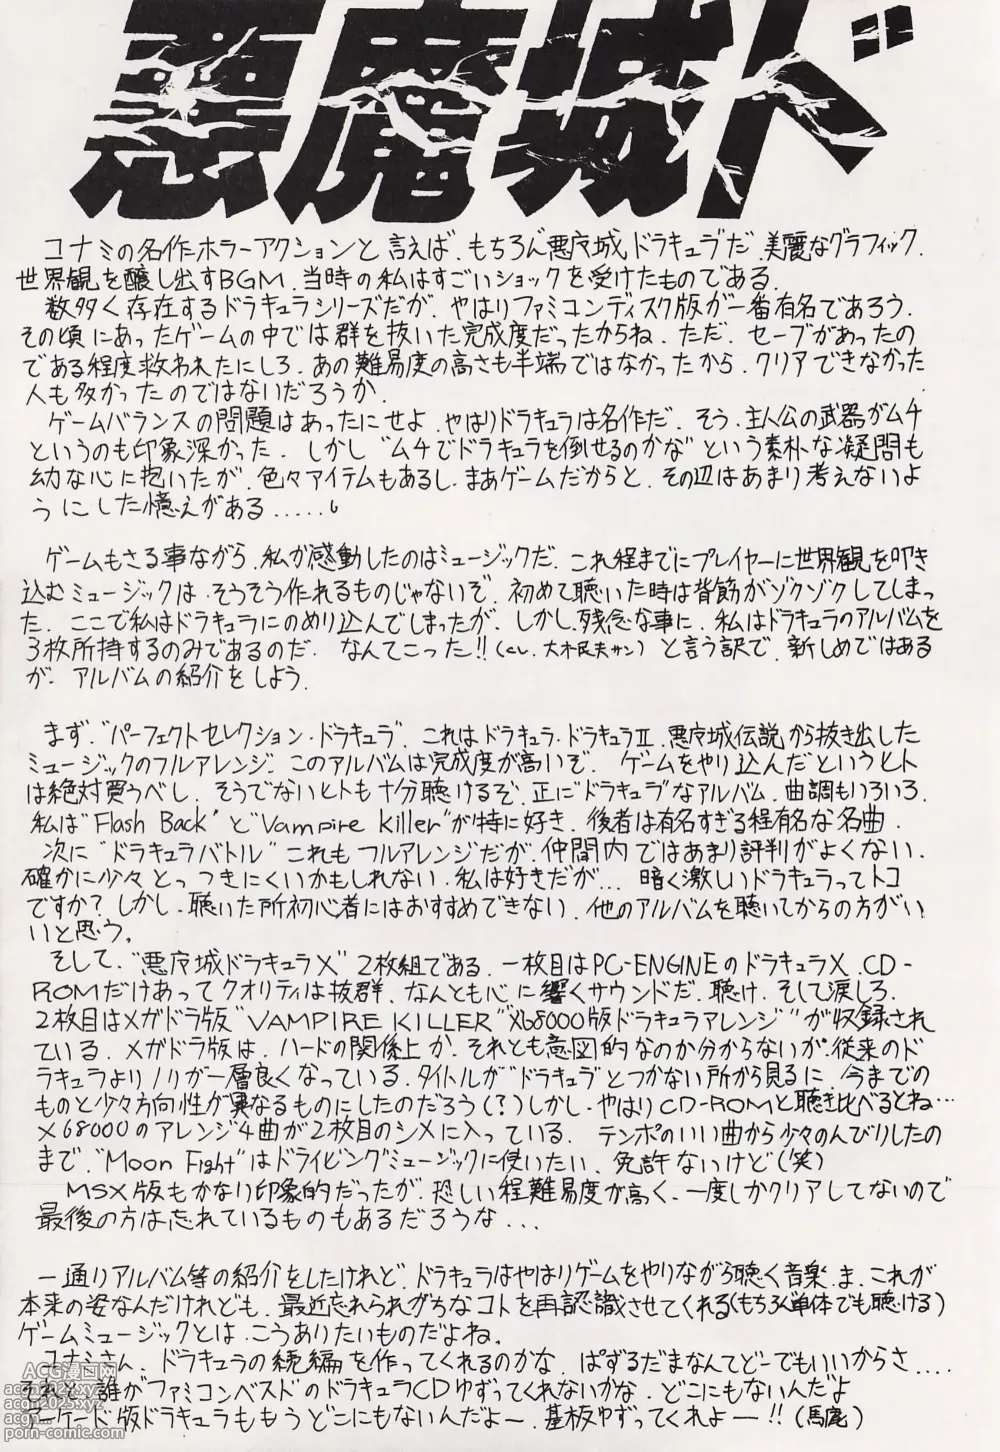 悪魔城ド
コナミの名作ホラーアクションと言えば、もちろん悪魔城ドラキュラだ。美麗なグラフィック、
世界観を醸し出すBGM、当時の私はすごいショックを受けたものである。
数多く存在するドラキュラシリーズだが、やはりファミコンディスク版が一番有名であろう。
その頃にあったゲームの中では群を抜いた完成度だったからね。ただ、セーブがあったの
である程度救われたにしろ、あの難易度の高さも半端ではなかったから、クリアできなかった
人も多かったのではないだろうか。
ゲームバランスの問題はあったにせよ、やはりドラキュラは名作だ。そう、主人公の武器がムチ
というのも印象深かった。しかし“ムチでドラキュラを倒せるのかな”という素朴な疑問も
幼な心に抱いたが、色々アイテムもあるし、まあゲームだからと、その辺はあまり考えないよ
うにした憶えがある.....。
ゲームもさる事ながら、私が感動したのはミュージックだ。これ程までにプレイヤーに世界観を叩き
込むミュージックは、そうそう作れるものじゃないぞ。初めて聴いた時は背筋がゾクゾクしてしまっ
た。ここで私はドラキュラにのめり込んでしまったが、しかし、残念な事に、私はドラキュラのアルバムを
3枚所持するのみであるのだ。なんてこった!!(cv.大木民夫サン)と言う訳で、新しめではある
が、アルバムの紹介をしよう。
まず、“パーフェクトセレクション・ドラキュラ”。これはドラキュラ・ドラキュラII・悪魔城伝説から抜き出した
ミュージックのフルアレンジ。このアルバムは完成度が高いぞ。ゲームをやり込んだというヒト
は絶対買うべし。そうでないヒトも十分聴けるぞ。正に“ドラキュラ”なアルバム。曲調もいろいろ。
私は“Flash Back”と“Vampire Killer”が特に好き。後者は有名すぎる程有名な名曲。
次に“ドラキュラバトル”これもフルアレンジだが、仲間内ではあまり評判がよくない。
確かに少々とっつきにくいかもしれない。私は好きだが... 暗く激しいドラキュラってトコ
ですか?しかし、聴いた所初心者にはおすすめできない。他のアルバムを聴いてからの方がい
いと思う。
そして、“悪魔城ドラキュラX”2枚組である。一枚目はPC-ENGINEのドラキュラX。CD-
ROMだけあってクオリティは抜群、なんとも心に響くサウンドだ。聴け、そして涙しろ。
2枚目はメガドラ版“VAMPIRE KILLER”“X68000版ドラキュラアレンジ”が収録され
ている。メガドラ版は、ハードの関係上か、それとも意図的なのか分からないが、従来のド
ラキュラよりノリが一層良くなっている。タイトルが“ドラキュラ”とつかない所から見るに、今までの
ものと少々方向性が異なるものにしたのだろう(?)しかし、やはりCD-ROMと聴き比べるとね…
X68000のアレンジ4曲が2枚目のシメに入っている。テンポのいい曲から少々のんびりしたの
まで。“Moon Fight”はドライビングミュージックに使いたい。免許ないけど(笑)
MSX版もかなり印象的だったが、恐しい程難易度が高く、一度しかクリアしてないので
最後の方は忘れているものもあるだろうな...
一通りアルバム等の紹介をしたけれど、ドラキュラはやはりゲームをやりながら聴く音楽。ま、これが
本来の姿なんだけれども、最近忘れられがちなコトを再認識させてくれる(もちろん単体でも聴ける)
ゲームミュージックとは、こうありたいものだよね。
コナミさん、ドラキュラの続編を作ってくれるのかな。ぱずるだまなんてどーでもいいからさ....
それと、誰か“ファミコンベスト”のドラキュラCDゆずってくれないかな。どこにもないんだよ
アーケード版ドラキュラももうどこにもないんだよー。基板ゆずってくれよー!!(馬庵)
ACG漫画网
acgn2024.xyz
acgn2025.xyz
acgn...
porn-comic.com